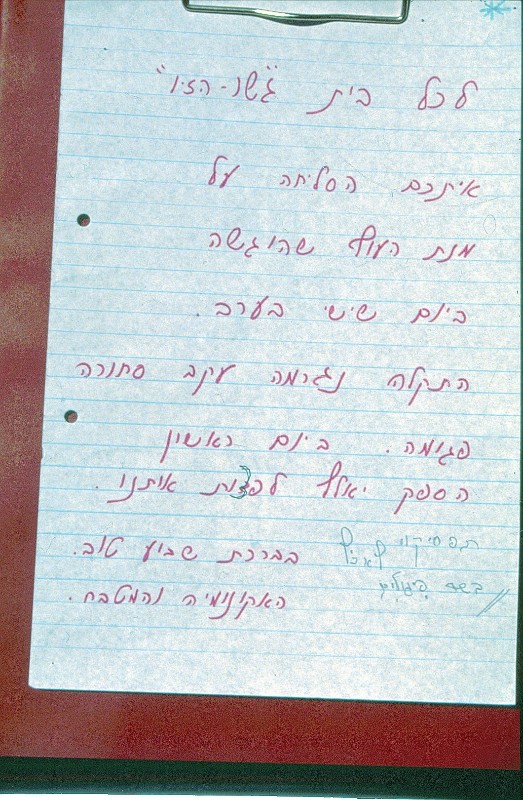 לכל בית "גשר-הזיו"
איתכם הסליחה על
מנת העוף שהוגשה
ביום שישי בערב.
התקלה נגרמה עקב סחורה
פגומה. ביום ראשון
הספק יאלץ לפצות איתנו.
בברכת שבוע טוב.
האקונומיה והמטבח.
תפסיקו לאכול
בשר